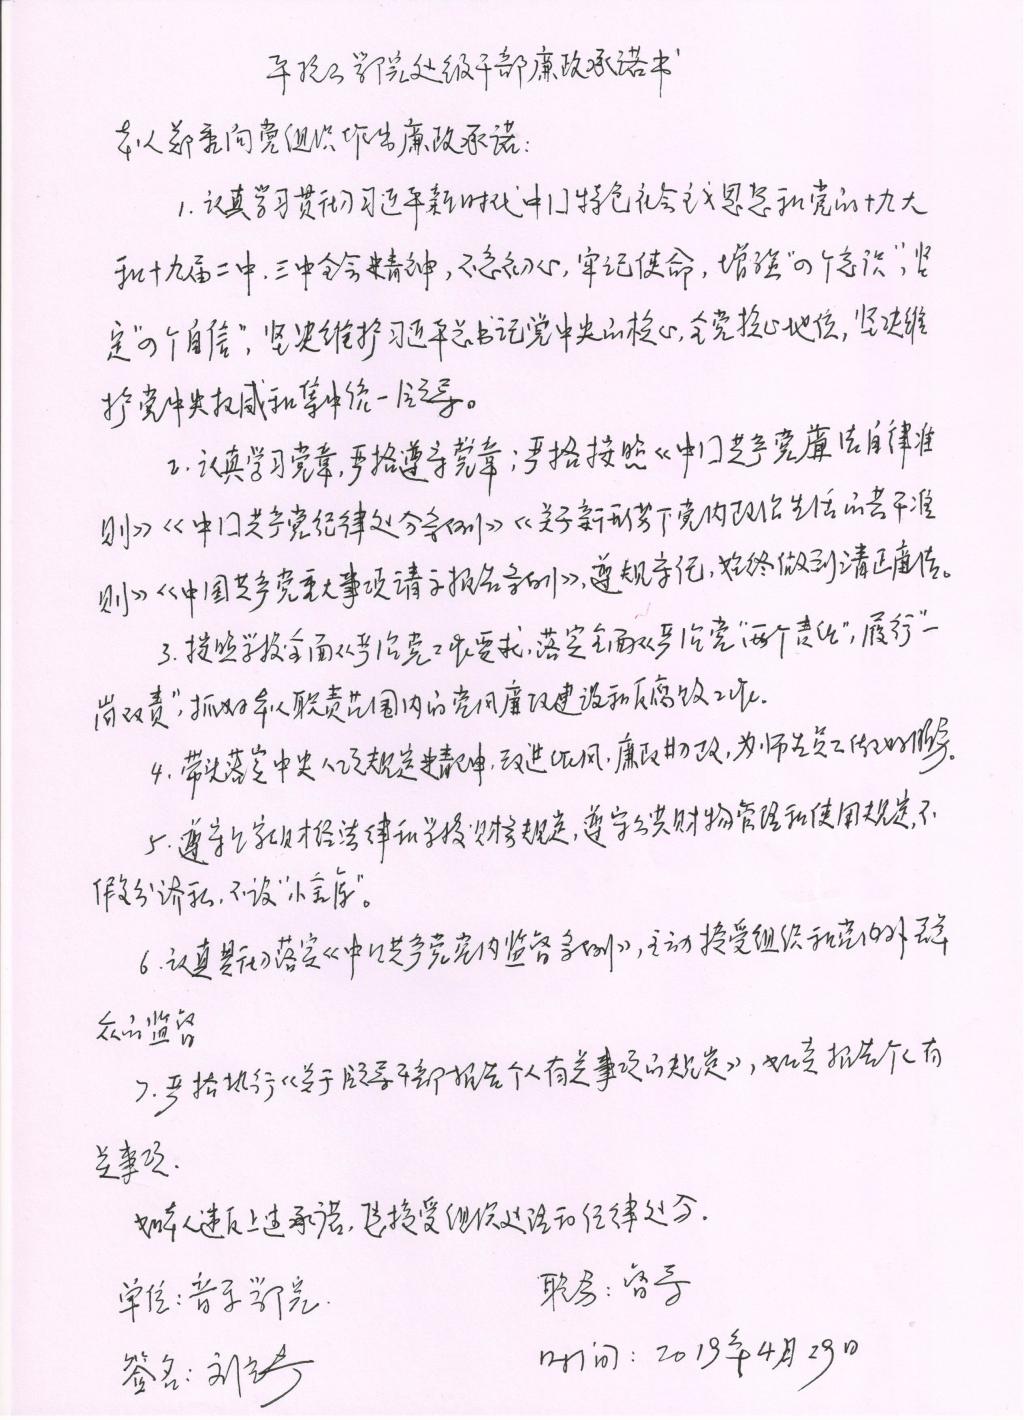 平顶山学院处级干部廉政承诺书
本人郑重向党组织作出廉政承诺:
1.认真学习贯彻习近平新时代中国特色社会主义思想和党的十九大
和十九届二中、三中全会精神,不忘初心,牢记使命,增强“四个意识”,坚
定“四个自信”,坚决维护习近平总书记党中央的核心、全党核心地位,坚决维
护党中央权威和集中统一领导。
2.认真学习党章,严格遵守党章;严格按照《中国共产党廉洁自律准
则》《中国共产党纪律处分条例》《关于新形势下党内政治生活的若干准
则》《中国共产党重大事项请示报告条例》,遵规守纪,始终做到清正廉洁。
3.按照学校全面从严治党工作要求,落实全面从严治党“两个责任”,履行“一
岗双责”,抓好本人职责范围内的党风廉政建设和反腐败工作.
4.带头落实中央八项规定精神,改进作风,廉政勤政,为师生员工做好服务。
5.遵守国家财经法律和学校财务规定,遵守公共财物管理和使用规定,不
假公济私,不设“小金库”。
6.认真贯彻落实《中国共产党党内监督条例》,主动接受组织和党内外群
众的监督
7.严格执行《关于领导干部报告个人有关事项的规定》,如实报告个人有
关事项.
如本人违反上述承诺,愿接受组织处理和纪律处分.
单位:音乐学院. 职务:督导
签名:刘 时间:2019年4月29日